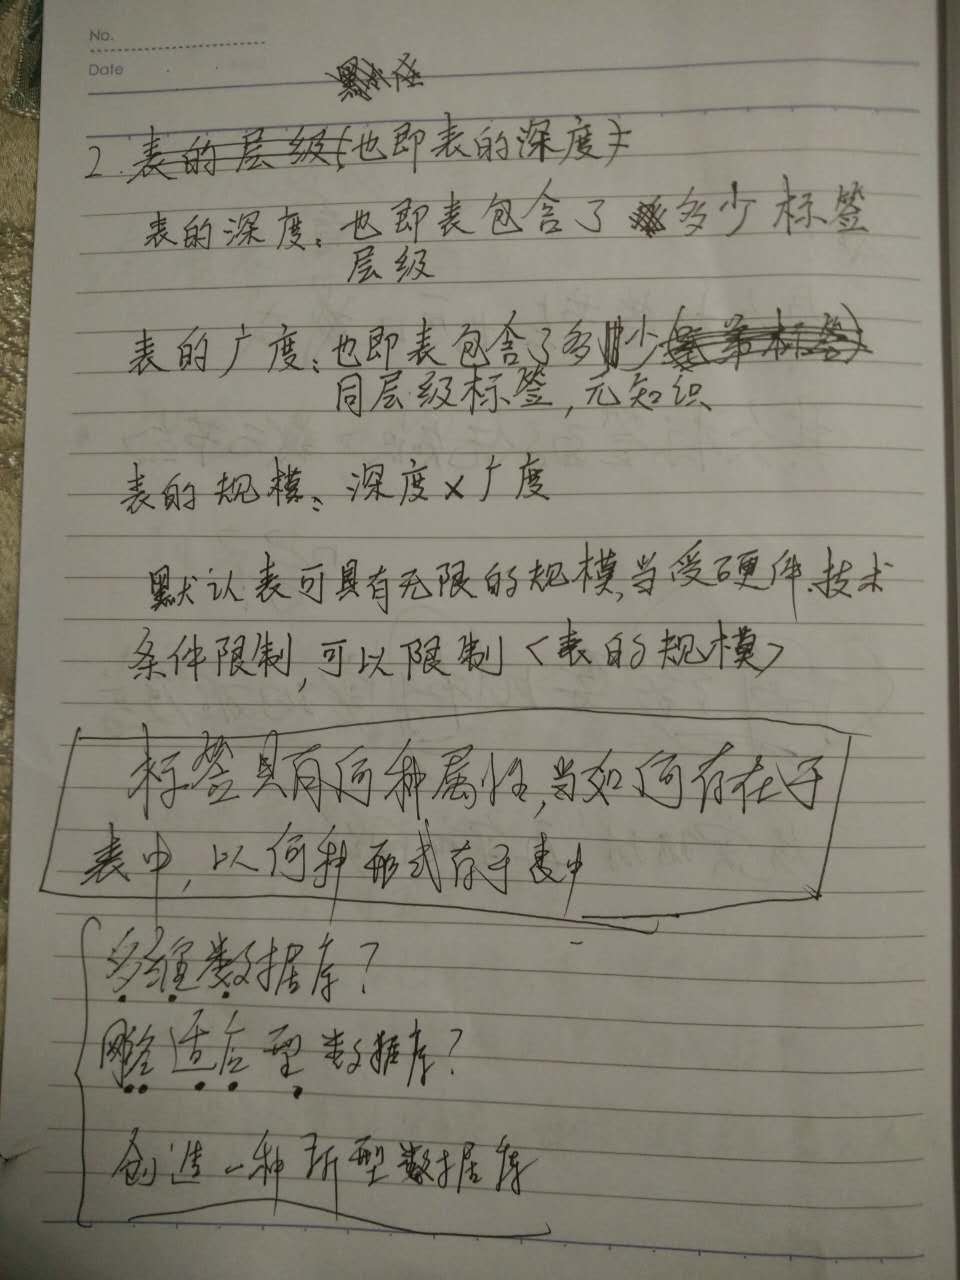 No.
Date
2. 表的层级(也即表的深度)
表的深度:也即表包含了多少标签
层级
表的广度:也即表包含了多少
同层级标签,元知识
表的规模:深度×广度
默认表可具有无限的规模,当受硬件、技术
条件限制,可以限制<表的规模>
标签具有何种属性,当如何存在于
表中,以何种形式存于表中
多维数据库?
适合型数据库?
创造一种新型数据库